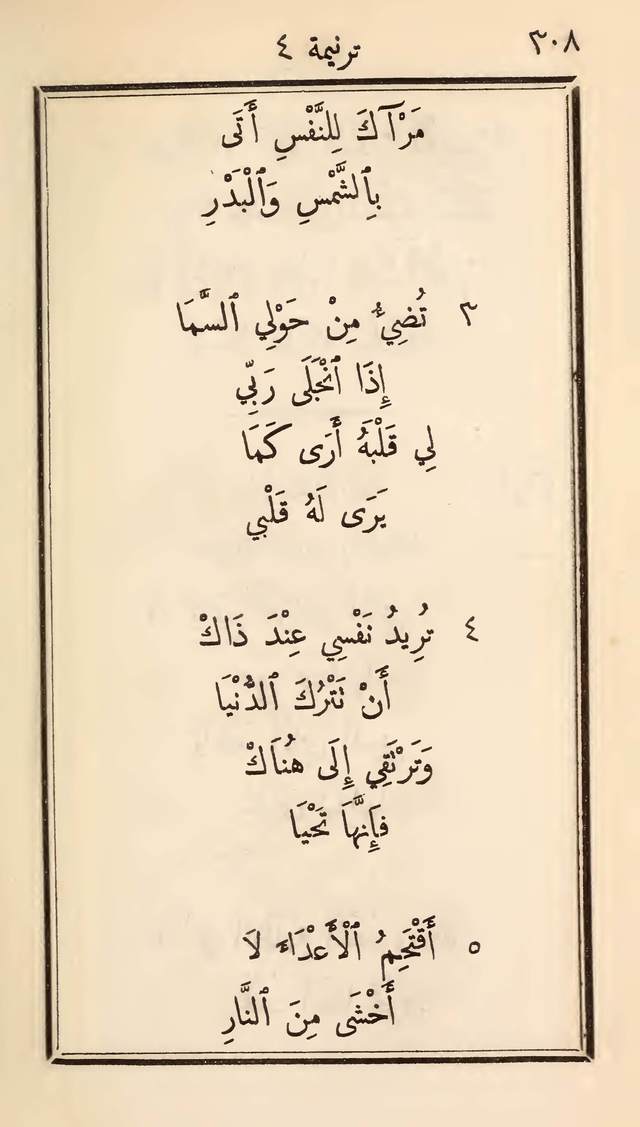 ٣٠٨
ترنيمة ٤
مَرْآكَ لِلنَّفْسِ أَتَى
بِٱلشَّمْسِ وَٱلْبَدْرِ
٣ تُضِيُ مِنْ حَوْلِي ٱلسَّمَا
إِذَا ٱنْجَلَى رَبِّي
لِي قَلْبَهُ أَرَى كَمَا
يَرَى لَهُ قَلْبِي
٤ تُرِيدُ نَفْسِي عِنْدَ ذَاكْ
أَنْ تَتْرُكَ ٱلدُّنْيَا
وَتَرْتَقِي إِلَى هُنَاكْ
فَإِنَّهَا تَحْيَا
٥ أَقْتَحِمُ ٱلْأَعْدَاءَ لَا
أَخْشَى مِنَ ٱلنَّارِ